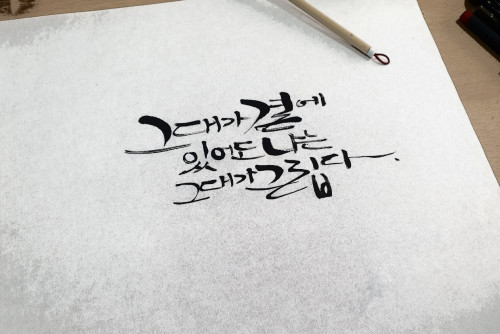 그대가 곁에
있어도 나는
그대가 그립다.